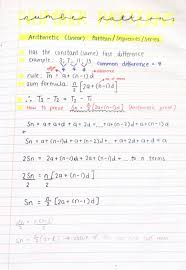 number patterns
Arithmetic (Linear) Pattern/Sequences/series
Has the constant (same) first difference
Example: 3; 7; 11; 15
common difference = 4
rule: Tn = a + (n-1)d
sum formula: n/2 [2a + (n-1)d]
∴ T3 - T2 = T2 - T1
How to prove Sn = n/2 [2a + (n-1)d] (Arithmetic proof)
Sn = a + a+d + a+2d + ... + a+(n-2)d + a+(n-1)d
Sn = a+(n-1)d + a+(n-2)d + ... + a+d + a
2Sn = 2a+(n-1)d + 2a+(n-1)d + ... to n terms
2Sn = n[2a + (n-1)d]
2 2
Sn = n/2 [2a + (n-1)d]